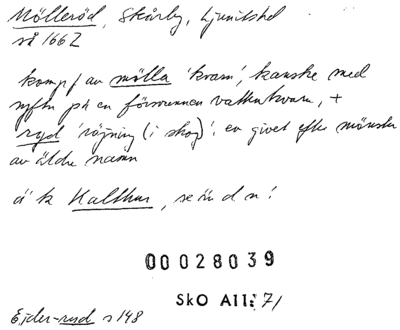 Mölleröd, Skårby, Ljunits hd
så 1662
komp / av mölla 'kvarn', kanske med
syftn på en försvunnen vattenkvarn, +
ryd 'röjning (i skog)'. ev givet efter mönster
av äldre namn
ä k Kalthus, se d n!
00028039
SkO AII: 71
Ejder-ryd s 148